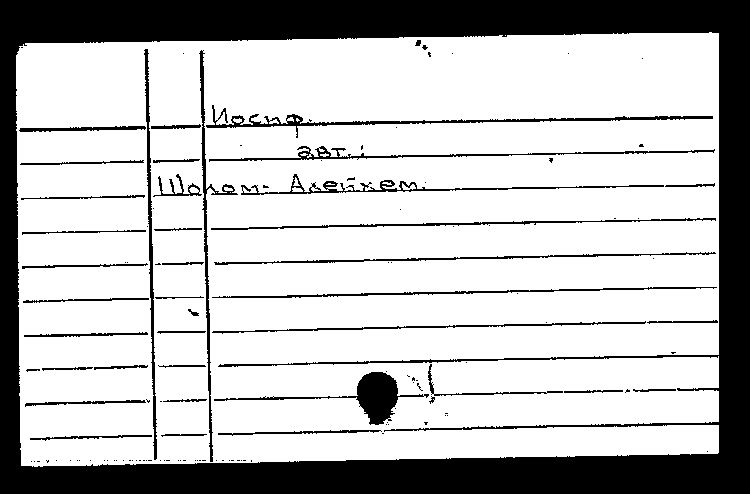 Иосиф.
авт.:
Шолом-Алейхем.